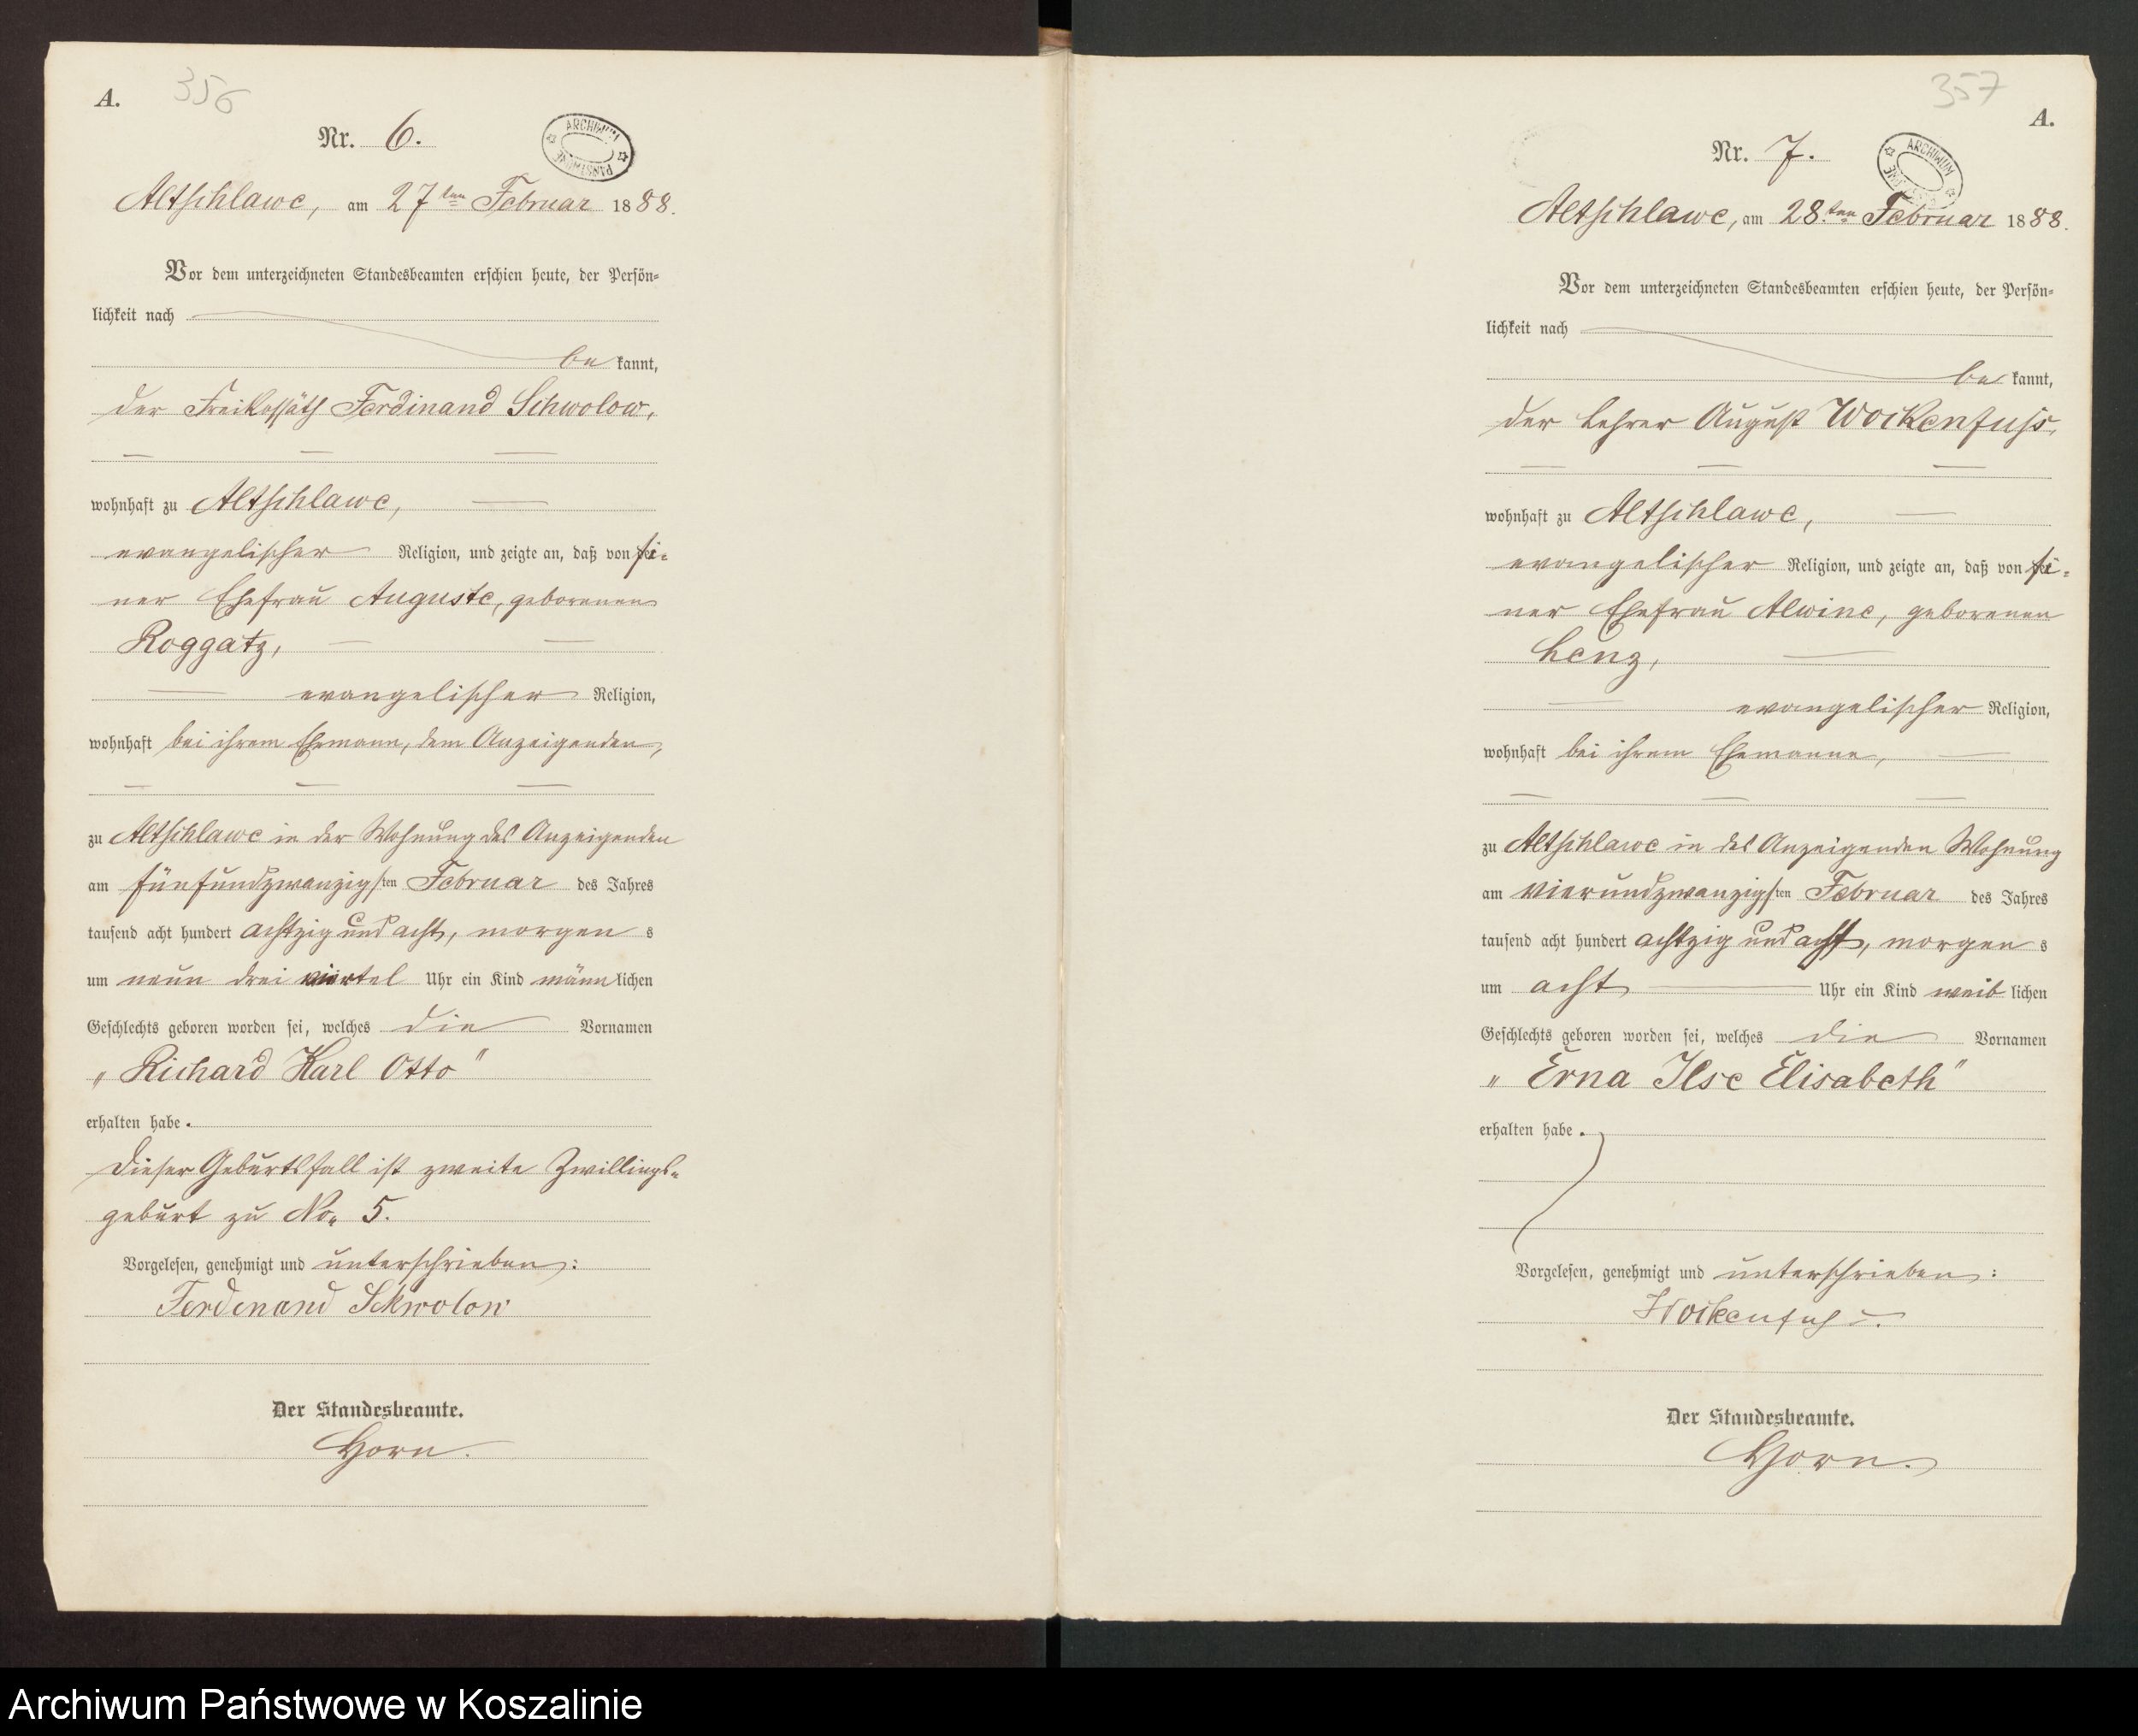 A.
356
Nr. 6.
ARCHIWUM PAŃSTWOWE
Altschlawe, am 27ten Februar 1888.
Vor dem unterzeichneten Standesbeamten erschien heute, der Persön-
lichkeit nach
be kannt,
der Freikossäth Ferdinand Schwolow,
wohnhaft zu Altschlawe,
evangelischer Religion, und zeigte an, daß von sei-
ner Ehefrau Auguste, geborenen
Roggatz,
evangelischer Religion,
wohnhaft bei ihrem Ehemann, dem Anzeigenden,
zu Altschlawe in der Wohnung des Anzeigenden
am fünfundzwanzigsten Februar des Jahres
tausend acht hundert achtzig und acht, morgens
um neun drei viertel Uhr ein Kind männlichen
Geschlechts geboren worden sei, welches die Vornamen
„Richard Karl Otto"
erhalten habe.
Dieser Geburtsfall ist zweite Zwillings-
geburt zu No. 5.
Vorgelesen, genehmigt und unterschrieben:
Ferdinand Schwolow
Der Standesbeamte.
Horn.
357
A.
Nr. 7.
ARCHIWUM
Altschlawe, am 28.ten Februar 1888.
Vor dem unterzeichneten Standesbeamten erschien heute, der Persön-
lichkeit nach
be kannt,
der Lehrer August Wockenfuss,
wohnhaft zu Altschlawe,
evangelischer Religion, und zeigte an, daß von sei-
ner Ehefrau Alwine, geborenen
Lenz,
evangelischer Religion,
wohnhaft bei ihrem Ehemanne,
zu Altschlawe in des Anzeigenden Wohnung
am vierundzwanzigsten Februar des Jahres
tausend acht hundert achtzig und acht, morgens
um acht Uhr ein Kind weiblichen
Geschlechts geboren worden sei, welches die Vornamen
„Erna Ilse Elisabeth"
erhalten habe.
Vorgelesen, genehmigt und unterschrieben:
Wockenfuss.
Der Standesbeamte.
Horn.
Archiwum Państwowe w Koszalinie